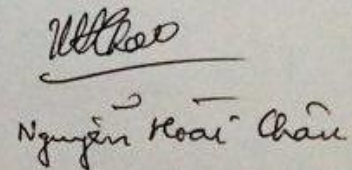 Nguyễn Hoài Châu